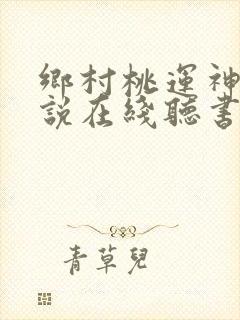 鄉村桃運神
說在綫聽書
青草兒